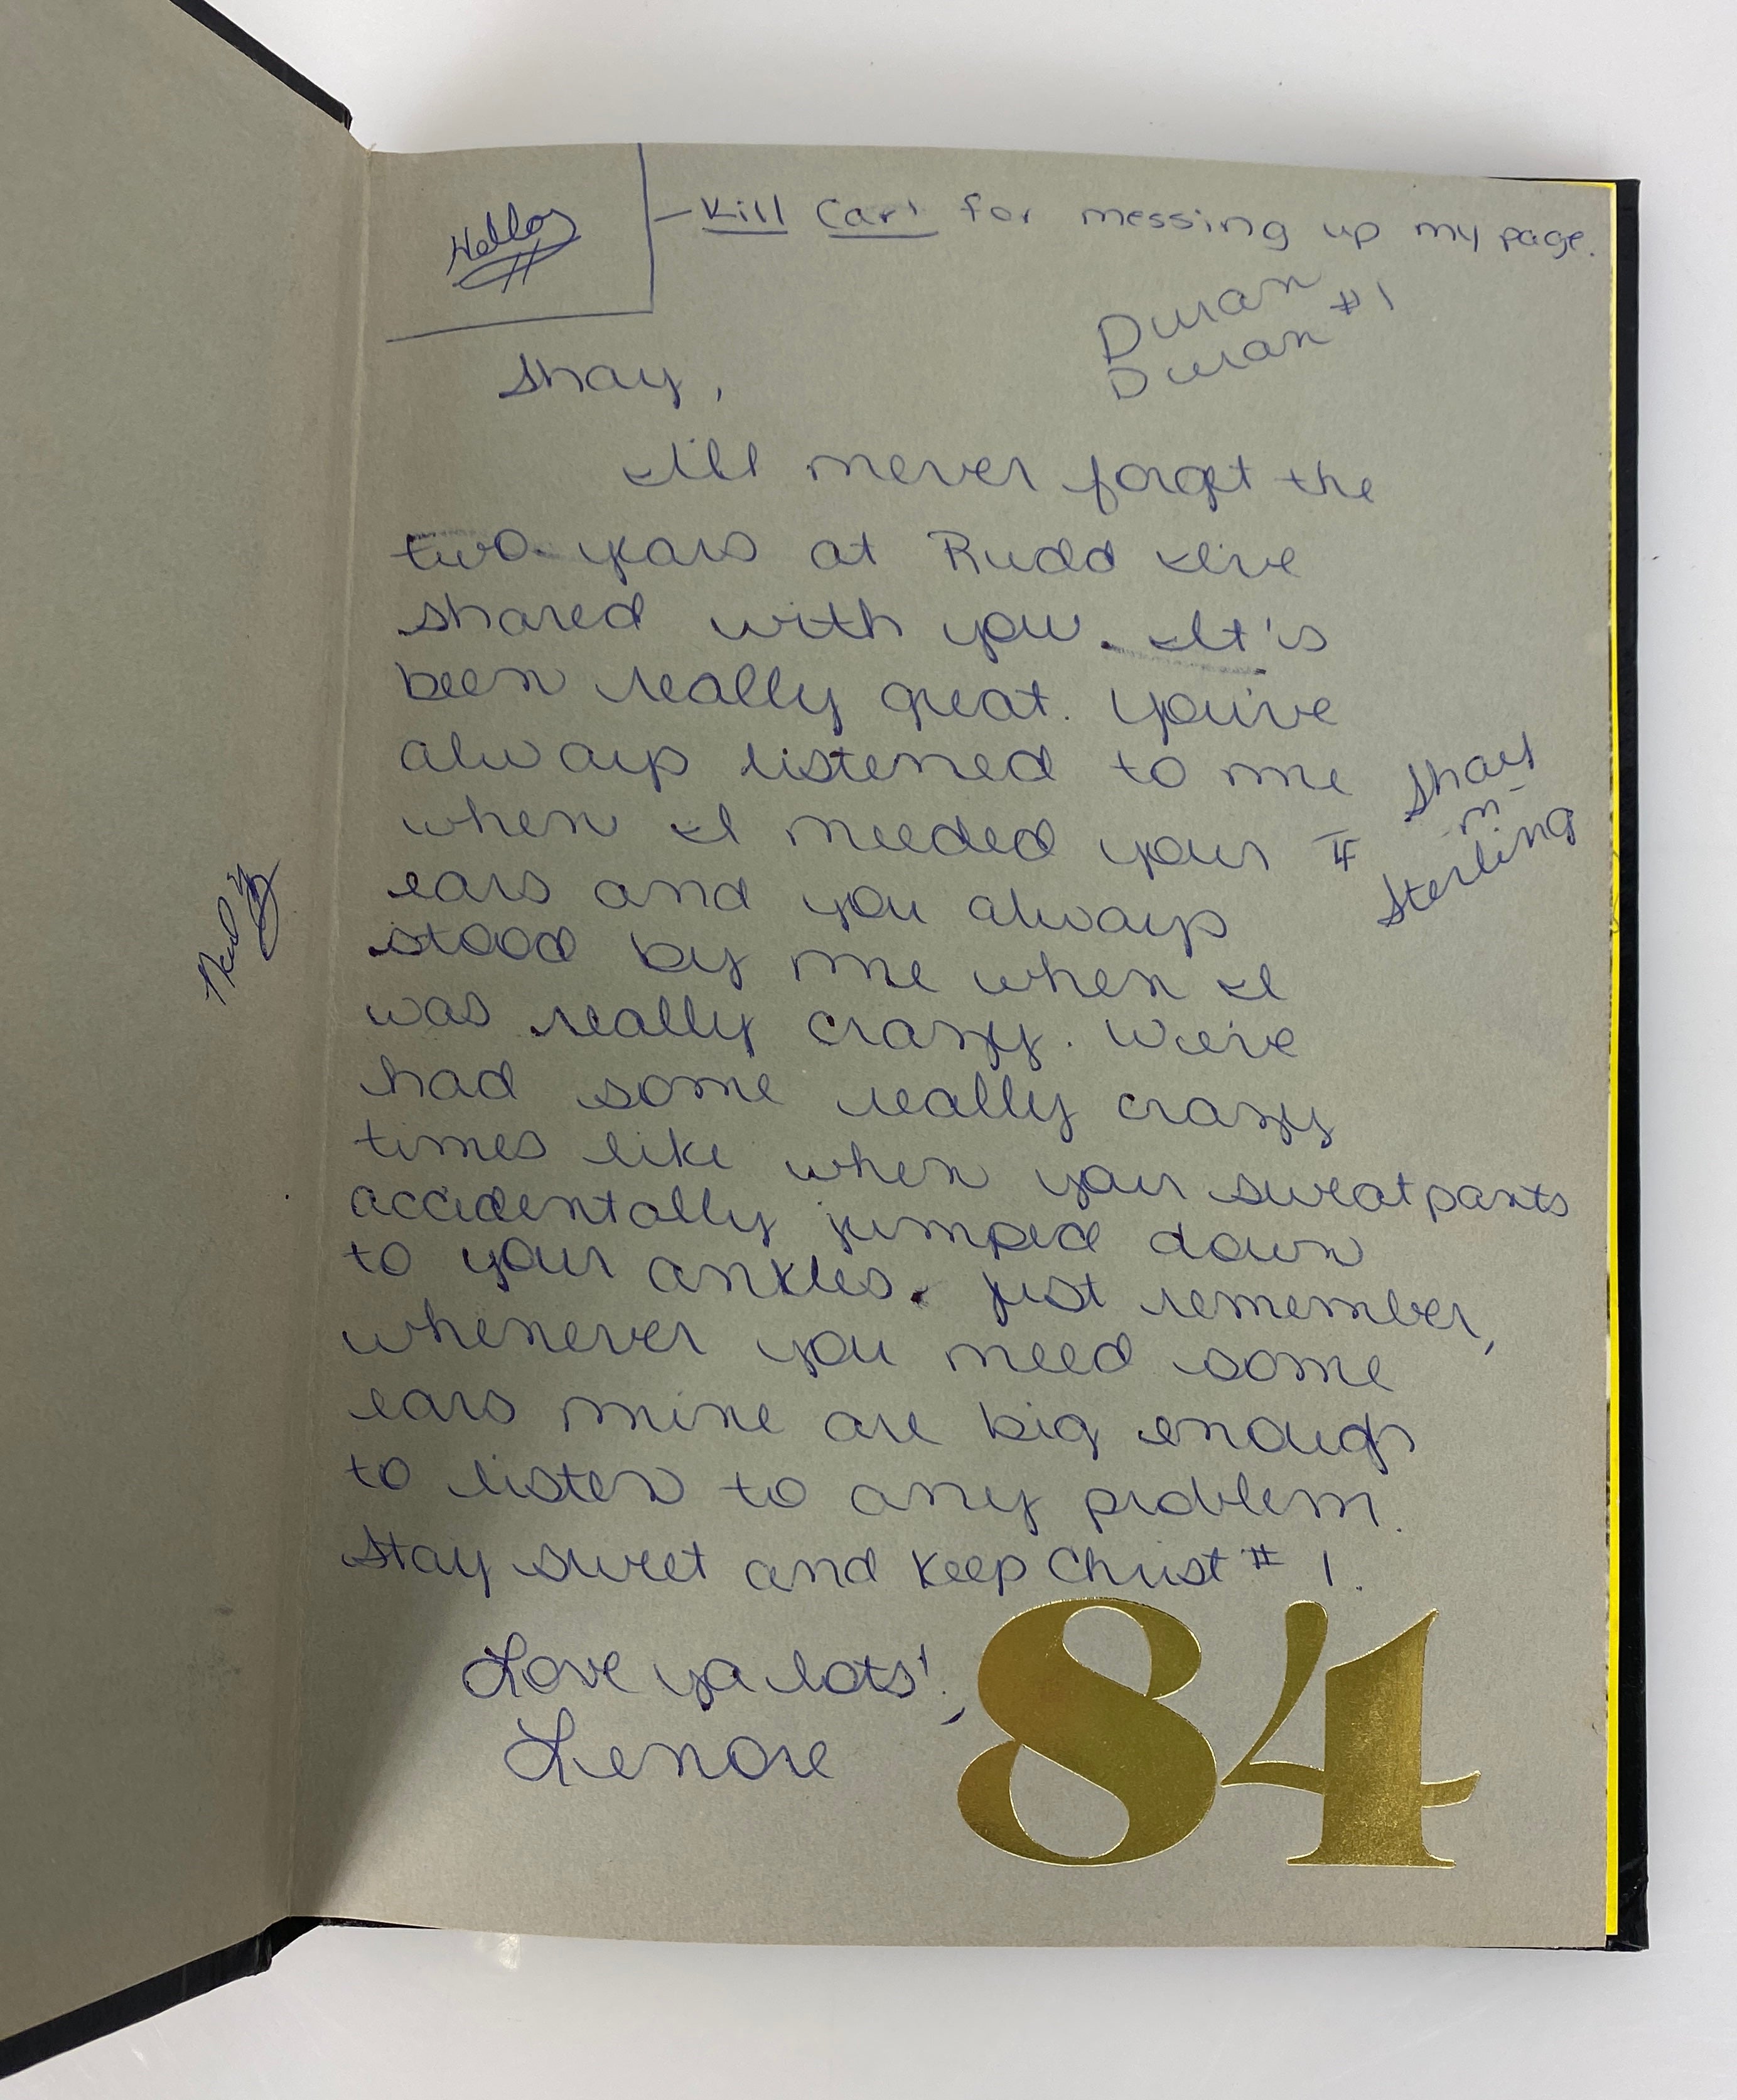 Hello
Kill Carl for messing up my page.
Duran
Duran #1
Shay,
I'll never forget the
two years at Rudd I've
shared with you. It's
been really great. You've
always listened to me
when I needed your
ears and you always
stood by me when I
was really crazy. We've
had some really crazy
times like when your sweatpants
accidentally jumped down
to your ankles. Just remember,
whenever you need some
ears mine are big enough
to listen to any problem.
Stay sweet and Keep Christ # 1.
Love ya lots!,
Lenore
Shay
-n-
Sterling
84